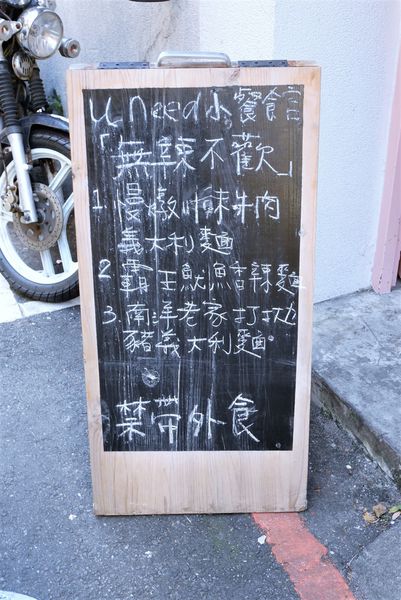 u need 小餐館
「無辣不歡」
1. 慢燉川味牛肉
義大利麵
2. 霸王魷魚香辣麵
3. 南洋老家打拋
豬義大利麵。
禁帶外食